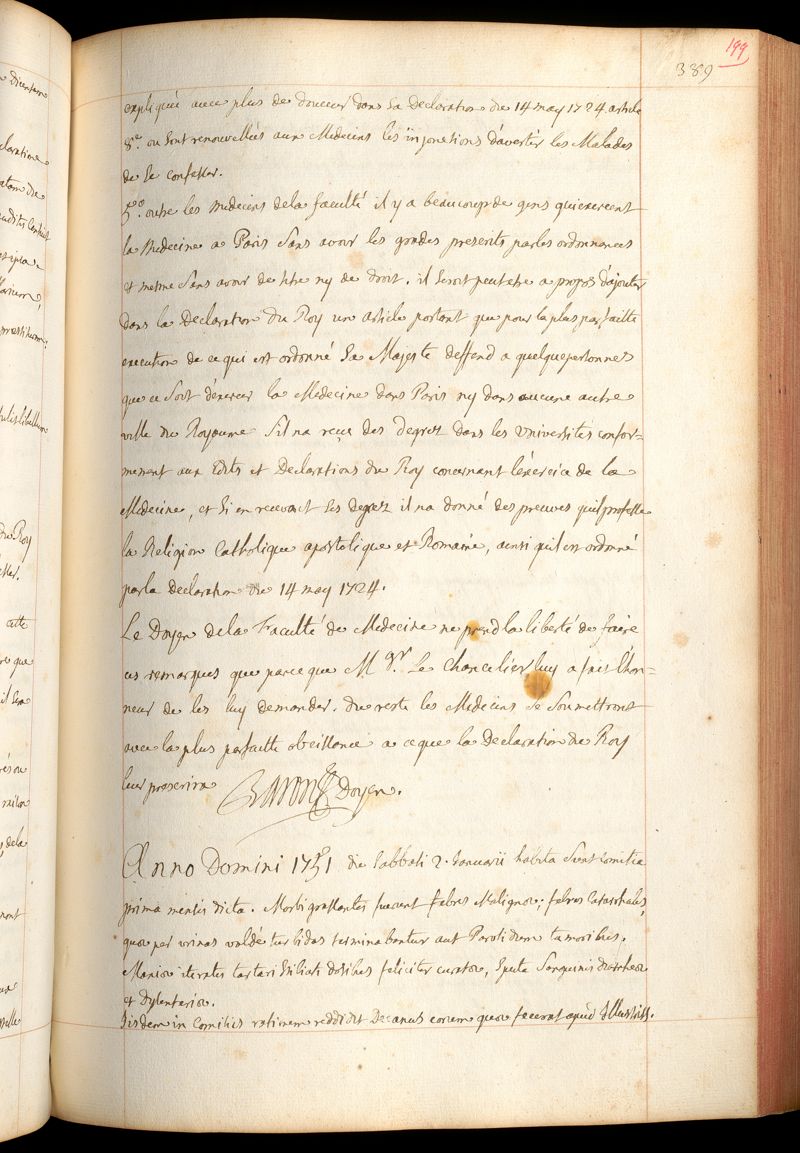 199
389
expliquée avec plus de douceur dans sa Declaration du 14 may 1724 article
8.e ou sont renouvellées aux Medecins les injonctions d'avertir les Malades
de se confesser.
5.o outre les Medecins dela faculté il y a beaucoup de gens qui exercent
la Medecine a Paris sans avoir les grades prescrits par les ordonnances
et mesme sans avoir de titre ny de droit. il seroit peutetre a propos d'ajouter
dans la Declaration du Roy un article portant que pour la plus parfaitte
execution de ce qui est ordonné Sa Majesté deffend a quelque personne
que ce soit d'exercer la Medecine dans Paris ny dans aucune autre
ville du Royaume s'il n'a reçu des degrez dans les Universités confor-
mement aux Edits et Declarations du Roy concernant l'exercice de la
Medecine, et si en recevant ses degrez il n'a donné des preuves qu'il professe
la Religion Catholique apostolique et Romaine, ainsi qu'il est ordonné
par la Declaration du 14 may 1724.
Le Doyen dela Faculté de Medecine ne prend la liberté de faire
ces remarques que parce que M.gr Le Chancelier luy a fait l'hon-
neur de les luy demander. du reste les Medecins se soumettront
avec la plus parfaitte obeissance a ce que la Declaration du Roy
leur prescrira Baron Doyen.
Anno Domini 1751 die Sabbati 2. Januarii habita sunt comitia
prima mensis dicta. Morbi grassantes fuerunt febres Malignæ; febres Catarrhales,
quæ per urinas valdè turbidas terminabantur aut Parotidum tumoribus.
Maniæ iteratis tartari stibiati dosibus feliciter curatæ, Sputa Sanguinis diarrheæ
et dysenteriæ.
Iisdem in Comitiis rationem reddidit Decanus eorum quæ fecerat apud Illustriss.